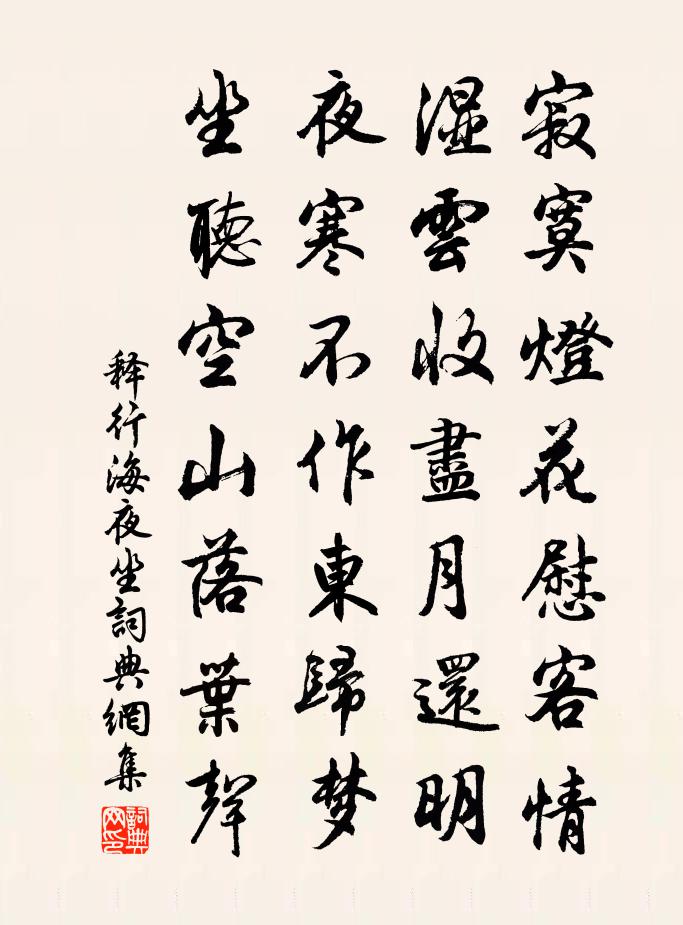 寂寞燈花慰客情
濕雲收盡月還明
夜寒不作東歸梦
坐聽空山落葉聲
释行海夜坐詞典網集
詞典网印